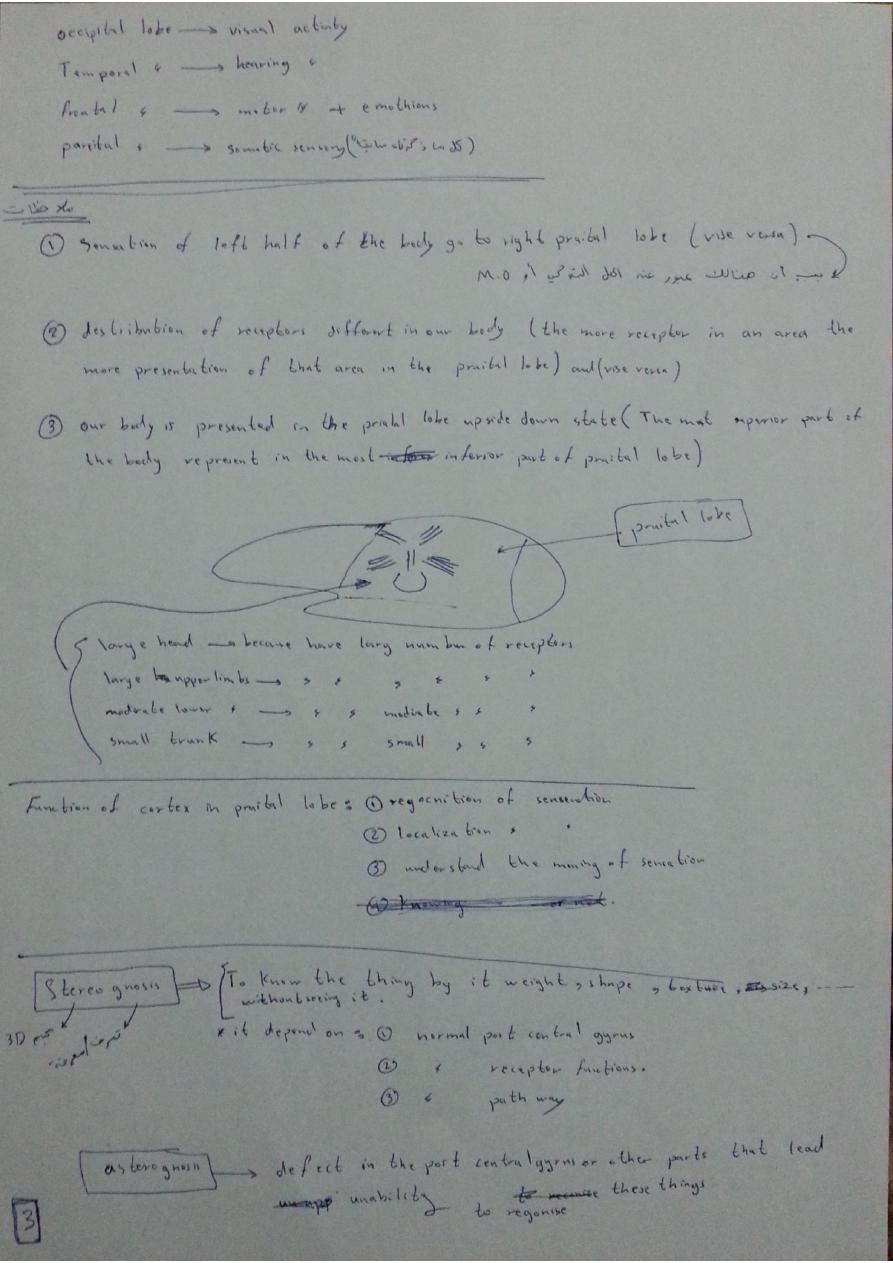 occipital lobe → visual activity
Temporal 〃 → hearing 〃
frontal 〃 → motor 〃 + emothions
parital 〃 → somatic sensory (
ملاحظات
① Sensation of left half of the body go to right praital lobe (vise versa)
M.O أو
② destribution of receptors different in our body (the more receptor in an area the
more presentation of that area in the praital lobe) and (vise versa)
③ our body is presented in the prital lobe upside down state (The most superior part of
the body represent in the most inferior part of praital lobe)
praital lobe
large head → because have larg number of receptors
large upper limbs → 〃 〃 〃 〃 〃 〃
modrate lower 〃 → 〃 〃 modrate 〃 〃 〃
small trunk → 〃 〃 small 〃 〃 〃
Function of cortex in praital lobe: ① regocnition of sensenation
② localization 〃 〃
③ understand the mining of sensation
④ Knowing or not.
Stereognosis ⇒ To know the thing by it weight, shape, texture, size, ----
without seeing it.
3D
* it depend on: ① normal post central gyrus
② 〃 receptor functions.
③ 〃 path way
asterognosis → defect in the post central gyrus or other parts that lead
unability to regonise these things
3